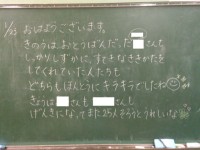 1/23 おはようございます。
きのうは、おとうばんだった さんも
しっかりしずかに、すてきなききかたを
してくれていた人たちも
どちらもぽんとうにキラキラでしたね
きょうは さんも さんも
げんきになって、また35人そろうとうれしいな